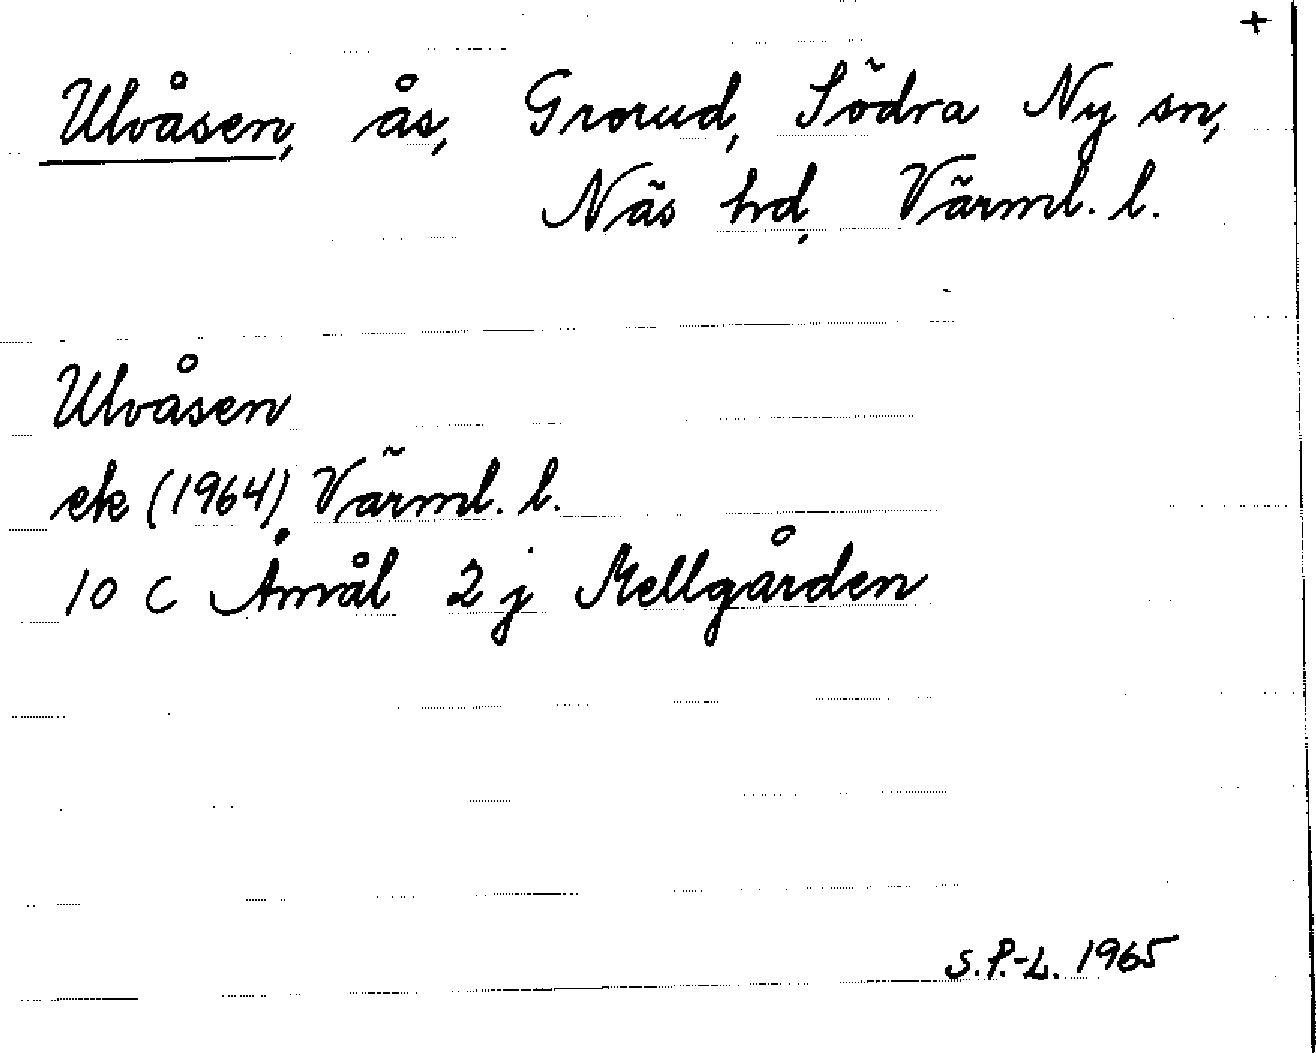 +
Ulvåsen, ås, Grorud, Södra Ny sn,
Näs hd, Värml. l.
Ulvåsen
ek (1964), Värml. l.
10 C Åmål 2 j Mellgården
S.P.-L. 1965